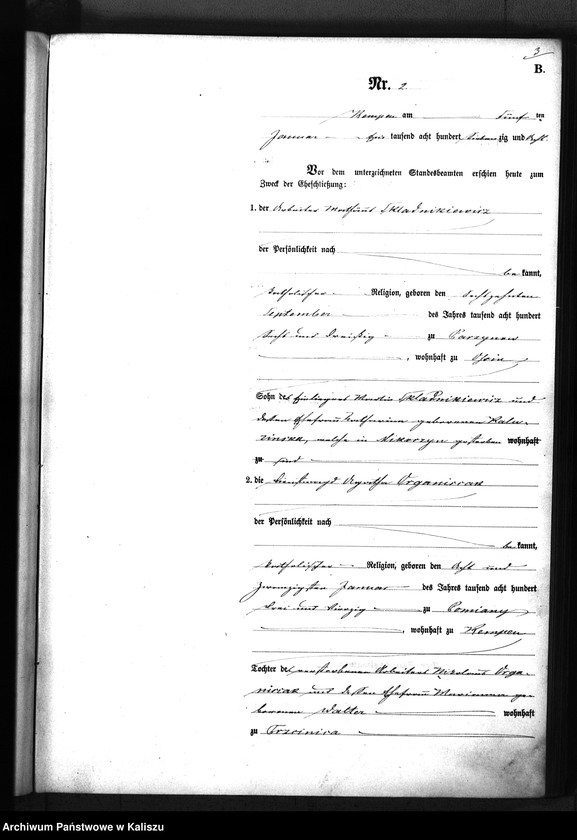 3
B.
Nr. 2
Kempen am Fünf ten
Januar tausend acht hundert siebenzig und Acht
Vor dem unterzeichneten Standesbeamten erschien heute zum
Zweck der Eheschließung:
1. der Arbeiter Skladnikiewicz
der Persönlichkeit nach
be kannt,
katholischer Religion, geboren den
September des Jahres tausend acht hundert
Sechs und Dreißig zu Parzynow
, wohnhaft zu Osin
Sohn des Skladnikiewicz und
dessen Ehefrau Katharina geborenen
zinska, welche in Mikorzyn gestorben wohnhaft
zu sind
2. die Dienstmagd Agatha Organiscak
der Persönlichkeit nach
be kannt,
katholischer Religion, geboren den Acht und
zwanzigsten Januar des Jahres tausend acht hundert
drei und vierzig zu Pomiany
, wohnhaft zu Kempen
Tochter des verstorbenen Arbeiters Nikolaus Orga-
niscak und dessen Ehefrau Marianna ge-
borenen Walter wohnhaft
zu Trzcinica
Archiwum Państwowe w Kaliszu